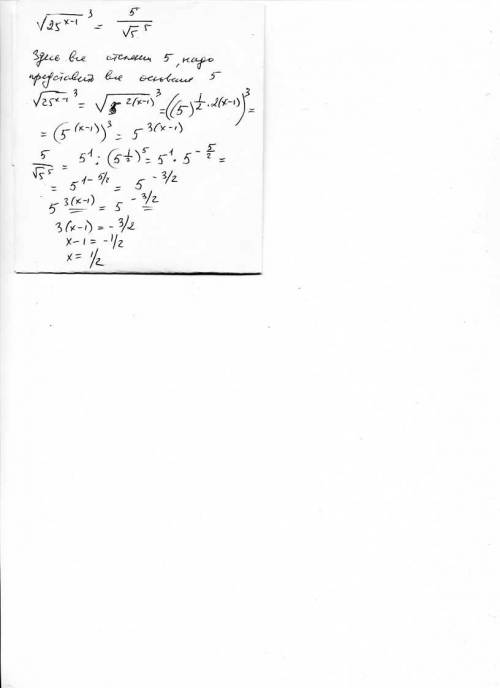 √25^(x-1)^3 = 5/√5^5
Здесь все степени 5, надо
представить все основания 5
√25^(x-1)^3 = √5^(2(x-1))^3 = ((5)^(1/2 · 2(x-1)))^3 =
= (5^(x-1))^3 = 5^(3(x-1))
5/√5^5 = 5^1 : (5^(1/2))^5 = 5^1 · 5^(-5/2) =
= 5^(1-5/2) = 5^(-3/2)
5^(3(x-1)) = 5^(-3/2)
3(x-1) = -3/2
x-1 = -1/2
x = 1/2